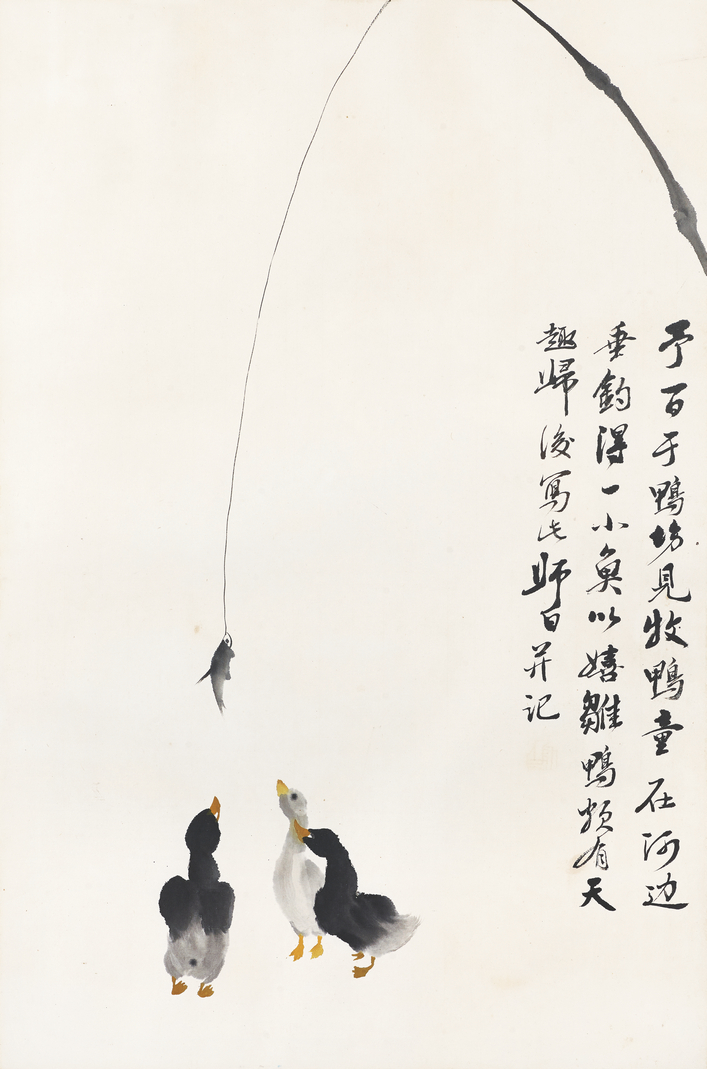 予百于鴨坊見牧鴨童在河边
垂釣得一小魚以嬉雛鴨頗有天
趣歸後寫此师白并记